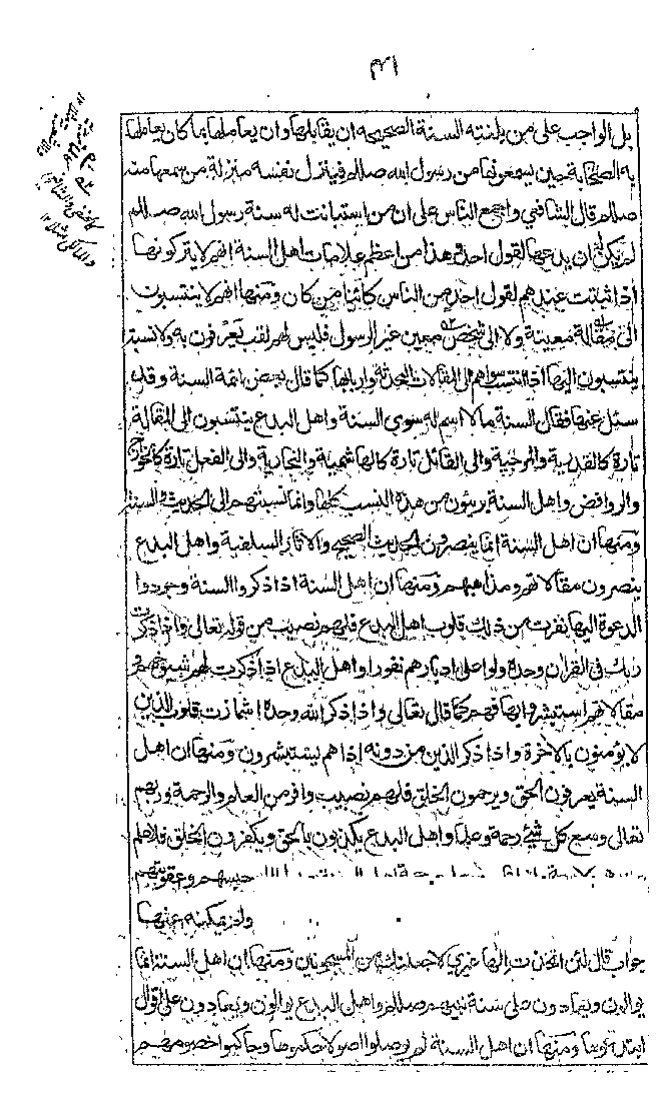 ٣١
بل الواجب على من بلغته السنة الصحيحه ان يقابلها وان يعاملها بما كان يعاملها
به الصحابة حين يسمعونها من رسول الله صللم فينزل نفسه منزلة من سمعها منه
صللم قال الشافي واجمع الناس على ان من استبانت له سنة رسول الله صللم
لم يكن له ان يدعها لقول احد وهذا من اعظم علامات اهل السنة انهم لا يتركونها
اذا ثبتت عندهم لقول احد من الناس كائنا من كان ومنها انهم لا ينتسبون
الى مقالة معينة ولا الى شخص معين غير الرسول فليس لهم لقب يعرفون به ولا نسبة
ينتسبون اليها اذا انتسب سواهم الى المقالات المحدثة واربابها كما قال بعض ائمة السنة وقد
سئل عنها فقال السنة ما لا اسم له سوى السنة واهل البدع ينتسبون الى المقالة
تارة كالقدرية والمرجية والى القائل تارة كالهاشمية والنجارية والى الفعل تارة كالخوارج
والروافض واهل السنة بريئون من هذه النسب كلها وانما نسبتهم الى الحديث والسنة
ومنها ان اهل السنة انما ينصرون الحديث الصحيح والاثار السلفية واهل البدع
ينصرون مقالاتهم ومذاهبهم ومنها ان اهل السنة اذا ذكروا السنة وجردوا
الدعوة اليها نفرت من ذلك قلوب اهل البدع فلهم نصيب من قوله تعالى واذا ذكرت
ربك في القران وحده ولوا على ادبارهم نفورا واهل البدع اذا ذكرت لهم شيوخهم و
مقالاتهم استبشروا بها فهم كما قال تعالى واذا ذكر الله وحده اشمازت قلوب الذين
لا يؤمنون بالاخرة واذا ذكر الذين من دونه اذا هم يستبشرون ومنها ان اهل
السنة يعرفون الحق ويرحمون الخلق فلهم نصيب وافر من العلم والرحمة وربهم
تعالى وسع كل شئ رحمة وعلما واهل البدع يكذبون بالحق ويكفرون الخلق فلا علم
حبسهم وعقوبتهم
جواب قال لئن اتخذت الها غيري لاجعلنك من المسجونين ومنها ان اهل السنة انما
يوالون ويعادون على سنة نبيهم صللم واهل البدع يوالون ويعادون على اقوال
ابتدعوها ومنها ان اهل السنة لم يوصلوا اصولا حكموها وحاكموا خصومهم